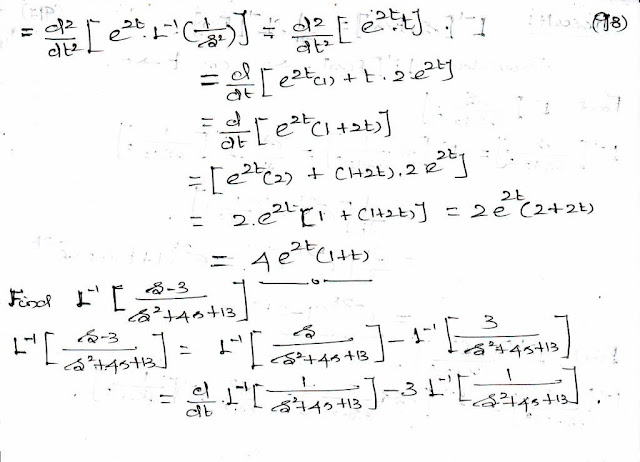 = d²/dt² [ e^{2t} · L⁻¹(1/s²) ] = d²/dt² [ e^{2t}·t ] . (98)
= d/dt [ e^{2t}(1) + t · 2e^{2t} ]
= d/dt [ e^{2t}(1+2t) ]
= [ e^{2t}(2) + (1+2t) · 2e^{2t} ]
= 2·e^{2t} [ 1 + (1+2t) ] = 2e^{2t}(2+2t)
= 4e^{2t}(1+t)
Find L⁻¹ [ (s-3)/(s²+4s+13) ]
L⁻¹ [ (s-3)/(s²+4s+13) ] = L⁻¹ [ s/(s²+4s+13) ] - L⁻¹ [ 3/(s²+4s+13) ]
= d/dt · L⁻¹ [ 1/(s²+4s+13) ] - 3 · L⁻¹ [ 1/(s²+4s+13) ] .